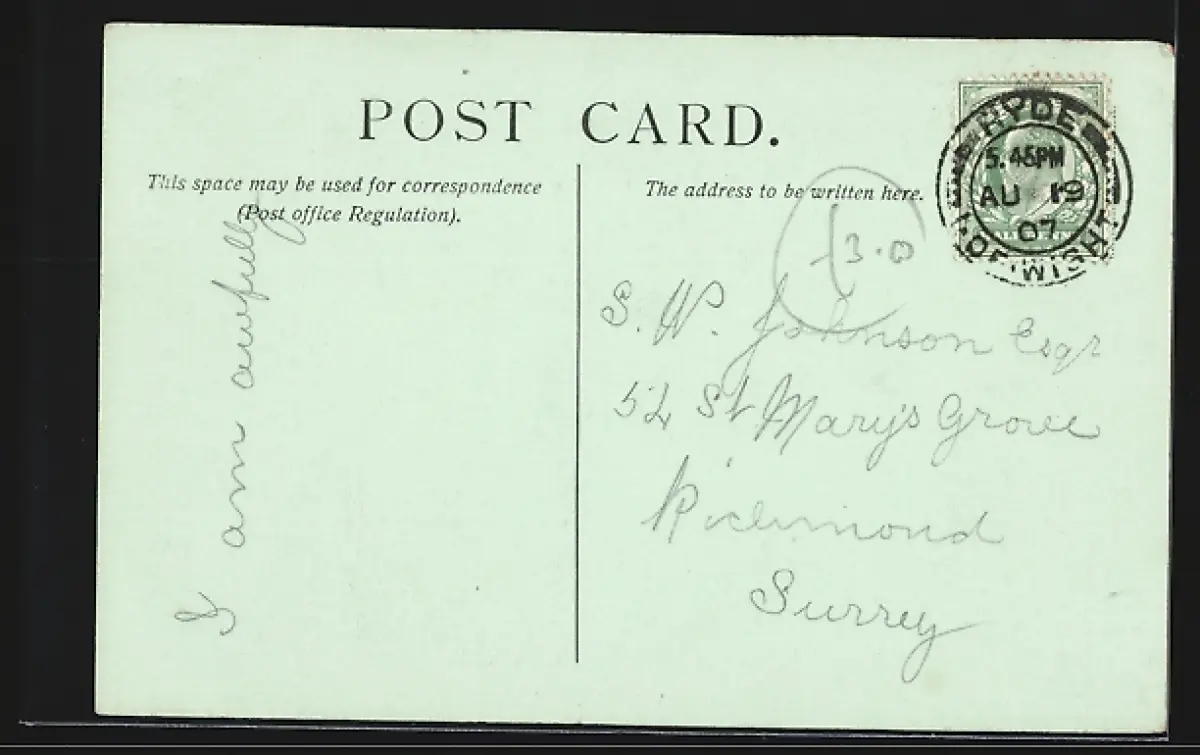 POST CARD.
This space may be used for correspondence
(Post office Regulation).
I am awfully
The address to be written here.
RYDE
5.45PM
AU 19
07
I. OF. WIGHT
13.0
S. W. Johnson Esqr
52 St Mary's Grove
Richmond
Surrey